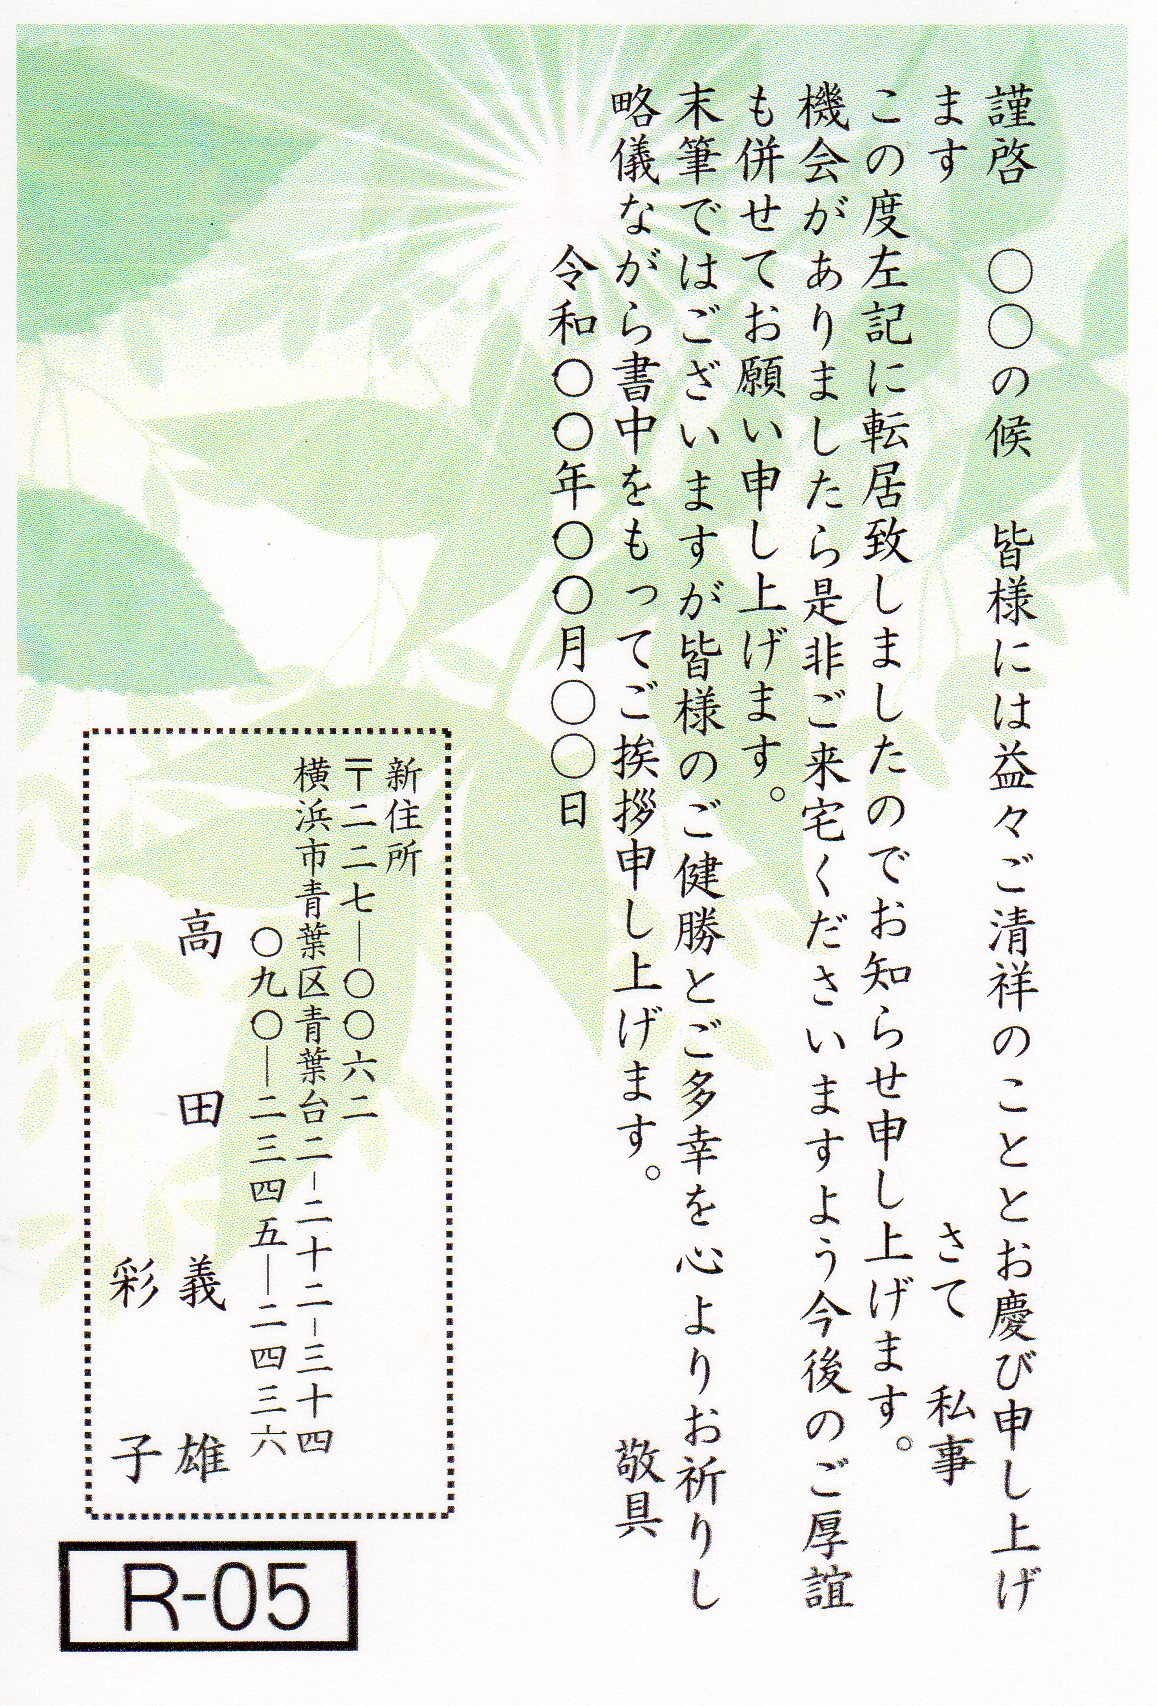 謹啓　〇〇の候　皆様には益々ご清祥のこととお慶び申し上げ
ます　さて　私事
この度左記に転居致しましたのでお知らせ申し上げます。
機会がありましたら是非ご来宅くださいますよう今後のご厚誼
も併せてお願い申し上げます。
末筆ではございますが皆様のご健勝とご多幸を心よりお祈りし
略儀ながら書中をもってご挨拶申し上げます。　敬具
令和〇〇年〇〇月〇〇日
新住所
〒二二七―〇〇六二
横浜市青葉区青葉台二−二十二−三十四
〇九〇―二三四五―二四三六
高田　義雄
彩子
R-05